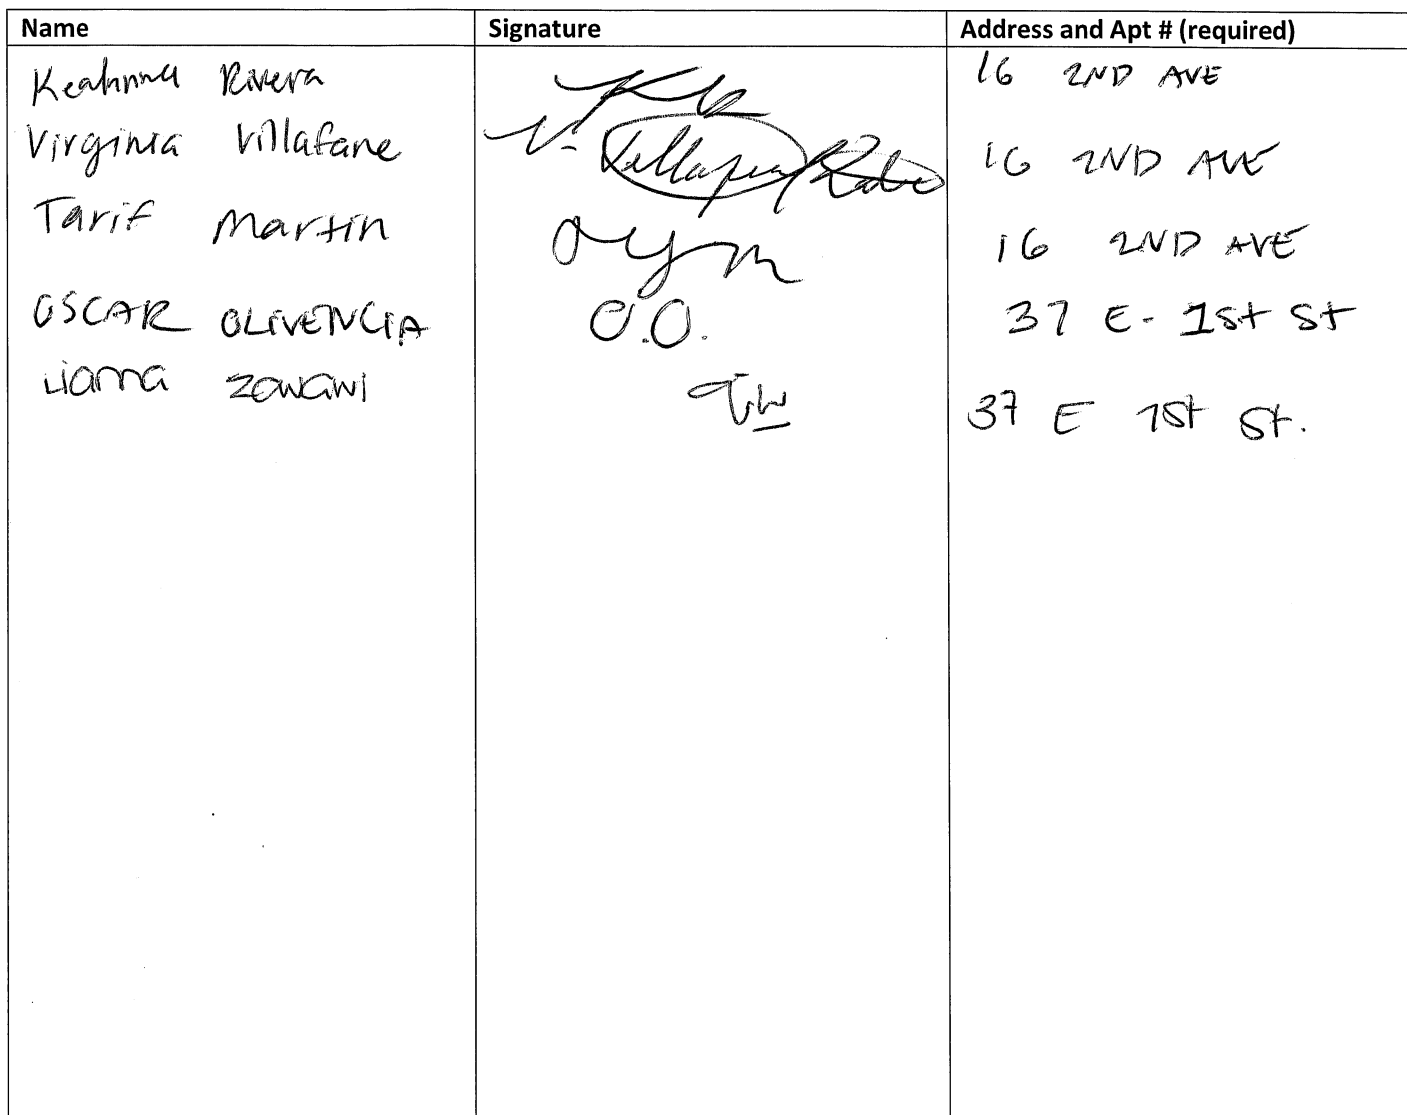 Name Signature Address and Apt # (required)
Rivera 16 2ND AVE
Virginia Villafane V. 16 2ND AVE
Tarif Martin 16 2ND AVE
OSCAR OLIVENCIA O.O. 37 E. 1St St
37 E 1St St.